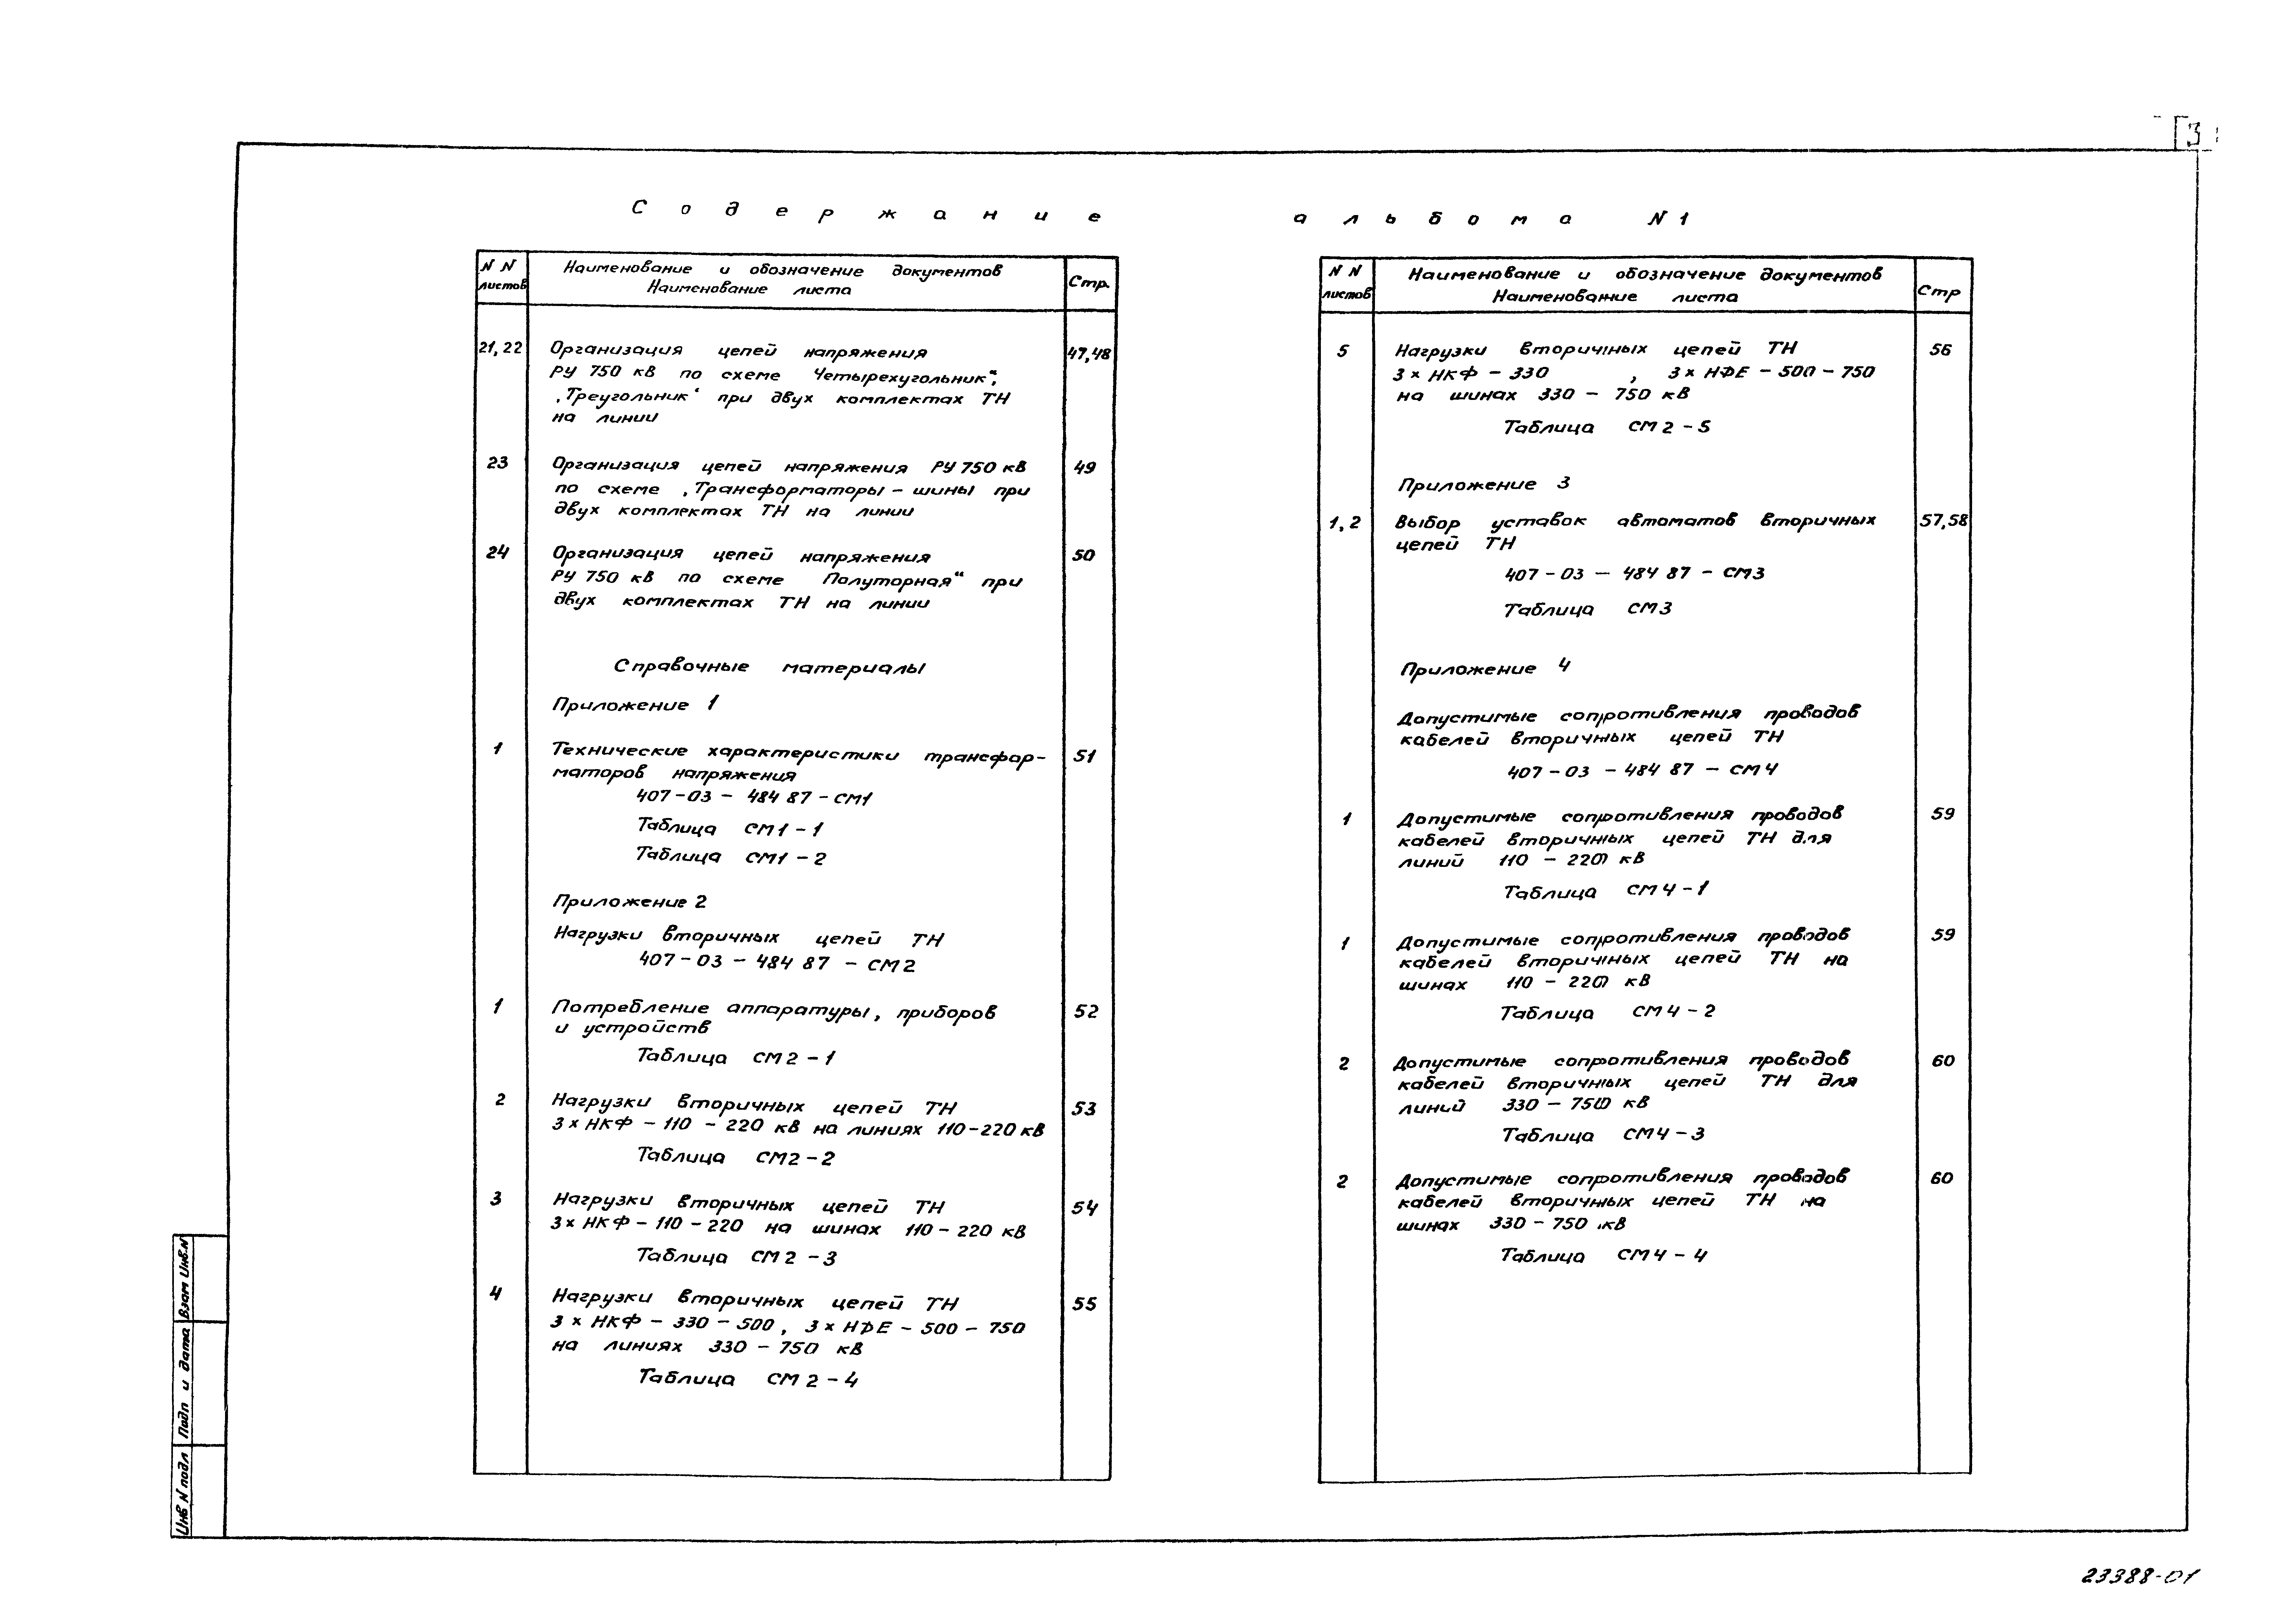 3
Содержание альбома N1
NN листов
Наименование и обозначение документов
Наименование листа
Стр.
21,22 Организация цепей напряжения 47,48
РУ 750 кВ по схеме Четырехугольник",
"Треугольник" при двух комплектах ТН
на линии
23 Организация цепей напряжения РУ 750 кВ 49
по схеме „Трансформаторы – шины при
двух комплектах ТН на линии
24 Организация цепей напряжения 50
РУ 750 кВ по схеме Полуторная" при
двух комплектах ТН на линии
Справочные материалы
Приложение 1
1 Технические характеристики трансфор- 51
маторов напряжения
407-03 – 484 87 – СМ1
Таблица СМ1-1
Таблица СМ1-2
Приложение 2
Нагрузки вторичных цепей ТН
407-03 – 484 87 – СМ2
1 Потребление аппаратуры, приборов 52
и устройств
Таблица СМ2-1
2 Нагрузки вторичных цепей ТН 53
3 х НКФ – 110 – 220 кВ на линиях 110-220 кВ
Таблица СМ2-2
3 Нагрузки вторичных цепей ТН 54
3 х НКФ – 110 – 220 на шинах 110 – 220 кВ
Таблица СМ2-3
4 Нагрузки вторичных цепей ТН 55
3 х НКФ – 330 – 500, 3 х НДЕ – 500 – 750
на линиях 330 – 750 кВ
Таблица СМ2-4
NN листов
Наименование и обозначение документов
Наименование листа
Стр
5 Нагрузки вторичных цепей ТН 56
3 х НКФ – 330 , 3 х НДЕ – 500 – 750
на шинах 330 – 750 кВ
Таблица СМ2-5
Приложение 3
1,2 Выбор уставок автоматов вторичных 57,58
цепей ТН
407-03 – 484 87 – СМ3
Таблица СМ3
Приложение 4
Допустимые сопротивления проводов
кабелей вторичных цепей ТН
407-03 – 484 87 – СМ4
1 Допустимые сопротивления проводов 59
кабелей вторичных цепей ТН для
линий 110 – 220 кВ
Таблица СМ4-1
1 Допустимые сопротивления проводов 59
кабелей вторичных цепей ТН на
шинах 110 – 220 кВ
Таблица СМ4-2
2 Допустимые сопротивления проводов 60
кабелей вторичных цепей ТН для
линий 330 – 750 кВ
Таблица СМ4-3
2 Допустимые сопротивления проводов 60
кабелей вторичных цепей ТН на
шинах 330 – 750 кВ
Таблица СМ4-4
Взам Инв.N
Подп и дата
Инв N подл
23388-01